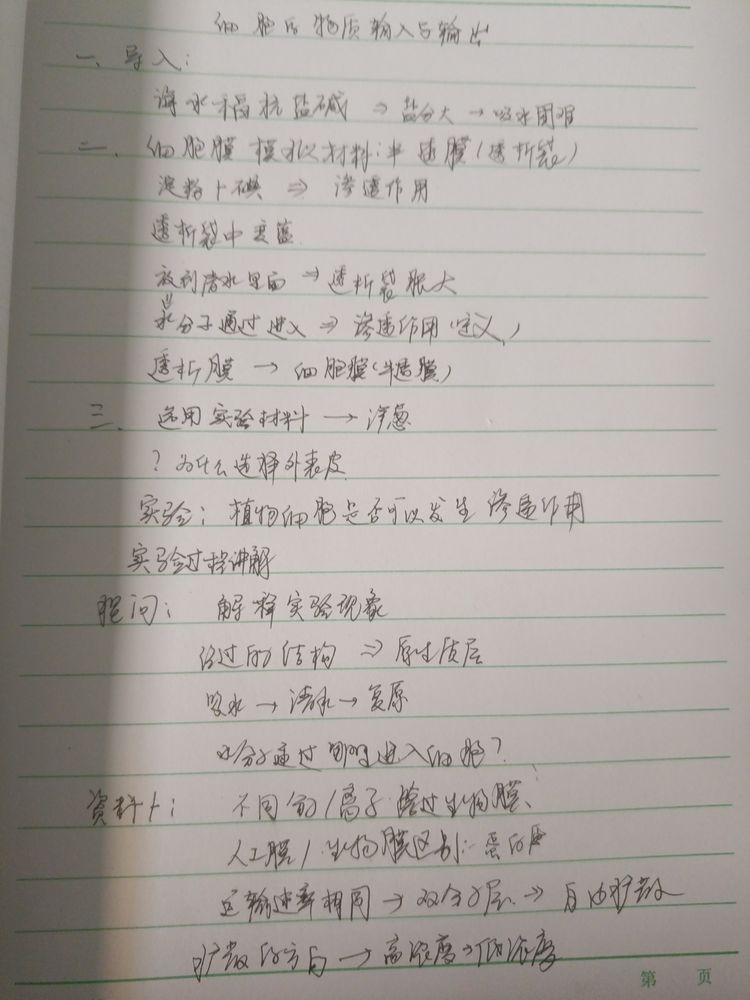 细胞的物质输入与输出
一、导入:
海水稻抗盐碱 ⇒ 盐分大 → 吸水困难
二、细胞膜模拟材料:半透膜(透析袋)
淀粉+碘 ⇒ 渗透作用
透析袋中变蓝
放到清水里面 ⇒ 透析袋胀大
⇓
水分子通过进入 ⇒ 渗透作用(定义)
透析膜 → 细胞膜(半透膜)
三、选用实验材料 → 洋葱
?为什么选择外表皮
实验:植物细胞是否可以发生渗透作用
实验过程讲解
提问: 解释实验现象
经过的结构 ⇒ 原生质层
吸水 → 清水 → 复原
水分子通过哪里进入细胞?
资料1: 不同分子/离子 跨过生物膜、
人工膜/生物膜区别:蛋白质
运输速率相同 → 双分子层 ⇒ 自由扩散
扩散的方向 → 高浓度→低浓度
第 页